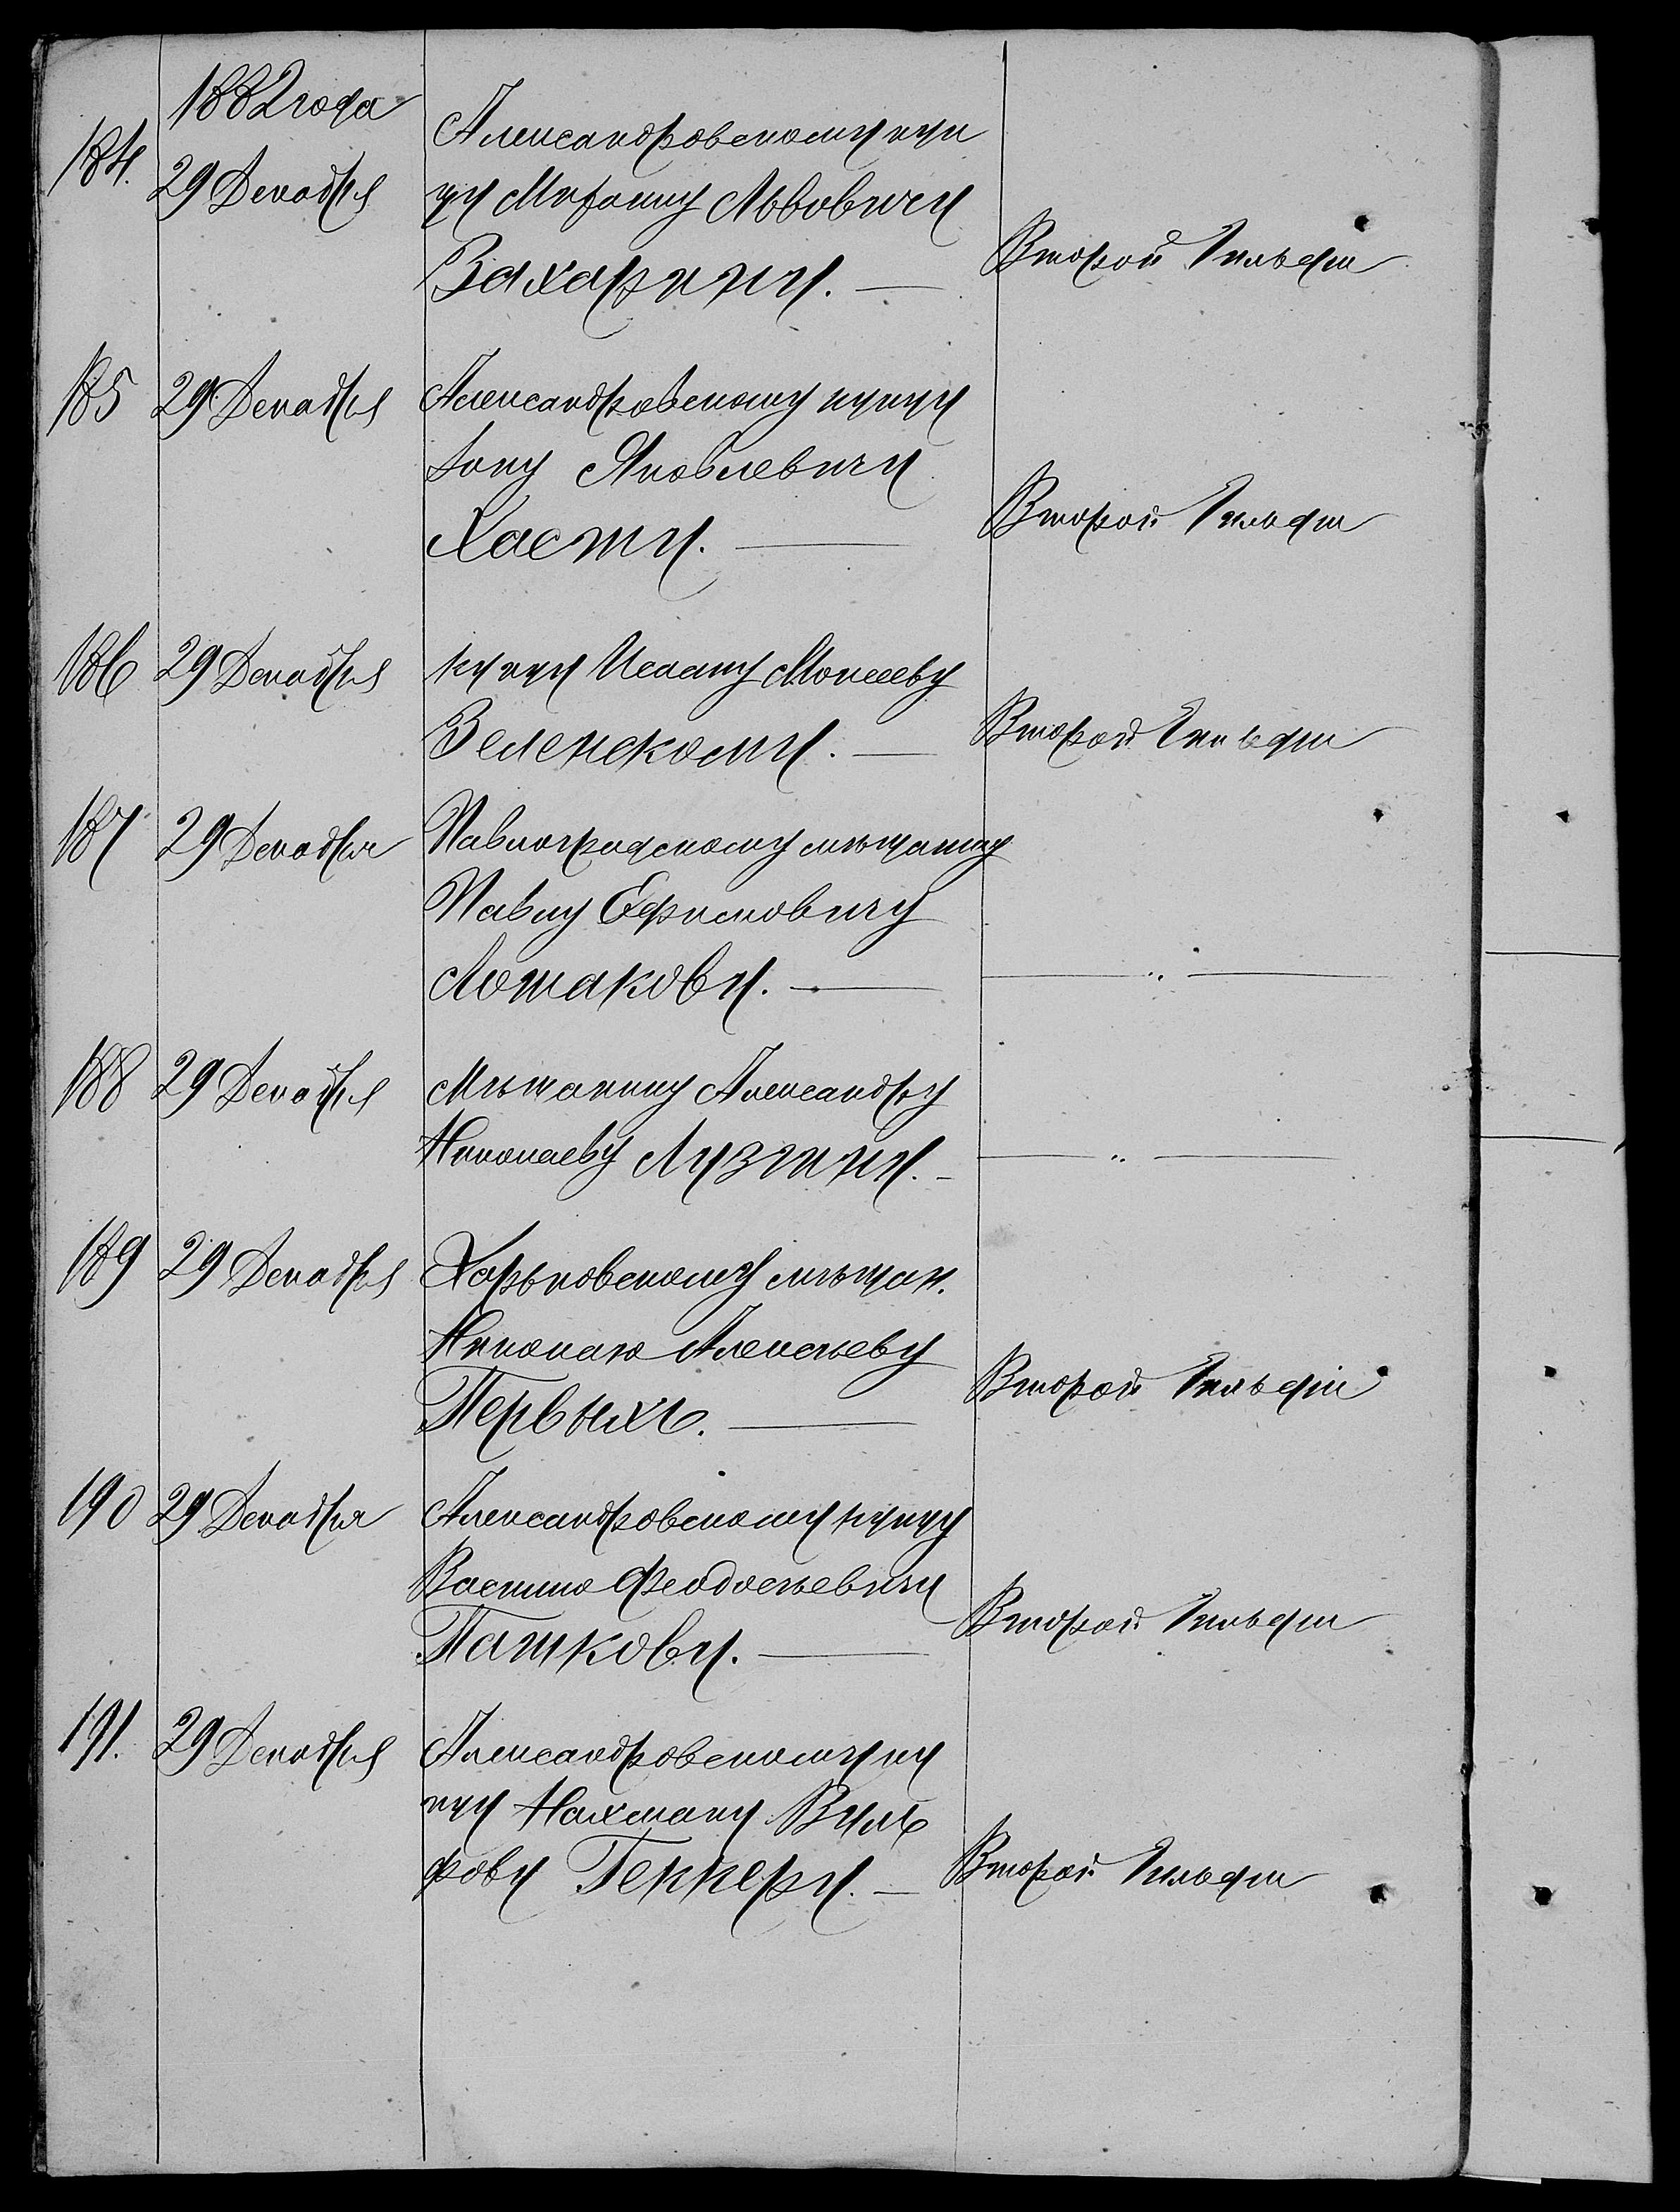 1882 года
184. 29 Декабря Александровскому куп
цу Митрофану Львовичу
Захарину. — Второй Гильдии
185 29 Декабря Александровскому купцу
Іону Яковлевичу
Хасту. — Второй Гильдии
186 29 Декабря купцу Исааку Моисееву
Зеленскому. — Второй Гильдии
187 29 Декабря Павлоградскому мѣщанину
Павлу Ефимовичу
Лошакову. — — „ —
188 29 Декабря Мѣщанину Александру
Николаеву Лузгину. - — „ —
189 29 Декабря Харьковскому мѣщан.
Николаю Алексѣеву
Первыхъ. — Второй Гильдіи
190 29 Декабря Александровскому купцу
Василию Феодосьевичу
Пашкову. — Второй Гильдии
191. 29 Декабря Александровскому ку
пцу Нахману Вуль
фову Геккеру. — Второй Гильдии